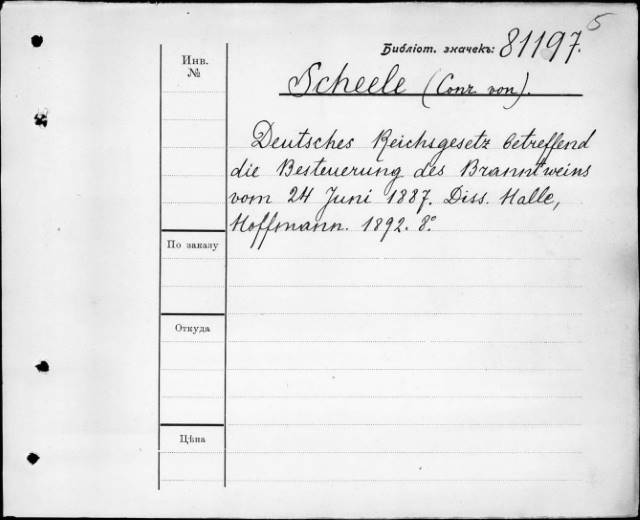 5
Библіот. значекъ: 81197.
Инв.
№
Scheele (Conr. von).
Deutsches Reichsgesetz betreffend
die Besteuerung des Branntweins
vom 24 Juni 1887. Diss. Halle,
Hoffmann. 1892. 8°.
По заказу
Откуда
Цѣна